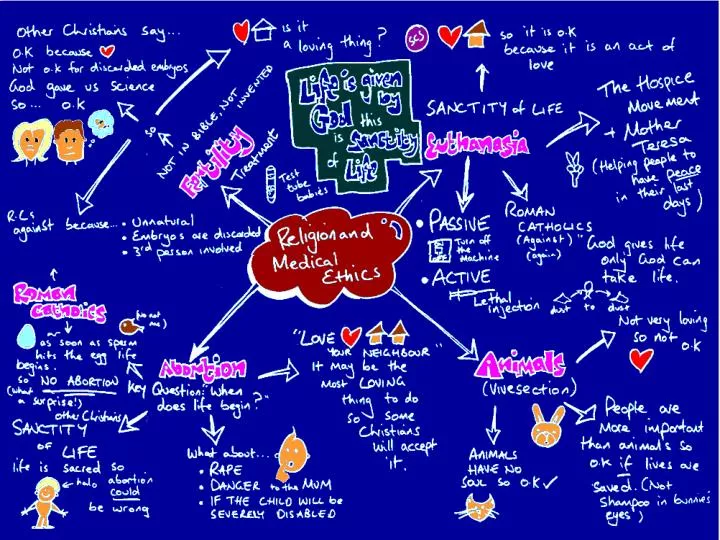 Other Christians say...
O.K because
Not o.k for discarded embryos
God gave us science
so... o.k
so
is it
a loving thing?
SOS
so it is o.k
because it is an act of
love
NOT IN BIBLE, NOT INVENTED
Fertility
Treatment
Test
tube
babies
Life is given
by
God this
is Sanctity
of Life
SANCTITY of LIFE
Euthanasia
The Hospice
Movement
+ Mother
Teresa
(Helping people to
have peace
in their last
days)
R.Cs
against because...
• Unnatural
• Embryos are discarded
• 3rd person involved
Religion and
Medical
Ethics
• PASSIVE
Turn off
the
Machine
• ACTIVE
Lethal
injection
ROMAN
CATHOLICS
(Against)
(again)
"God gives life
only God can
take life.
dust to dust
Roman
Catholics
(no not
me)
as soon as sperm
hits the egg life
begins.
so NO ABORTION
(what
a surprise!)
other Christians
SANCTITY
OF
LIFE
life is sacred so
halo abortion
could
be wrong
Abortion
Key
Question: "When
does life begin?"
What about...
• RAPE
• DANGER to the MUM
• IF THE CHILD WILL be
SEVERELY DISABLED
"LOVE
YOUR NEIGHBOUR"
It may be the
most LOVING
thing to do
so some
Christians
will accept
it.
Animals
(Vivesection)
Not very loving
so not o.k
ANIMALS
HAVE NO
SOUL SO O.K ✓
People are
more important
than animals so
o.k if lives are
saved. (Not
shampoo in bunnies
eyes)